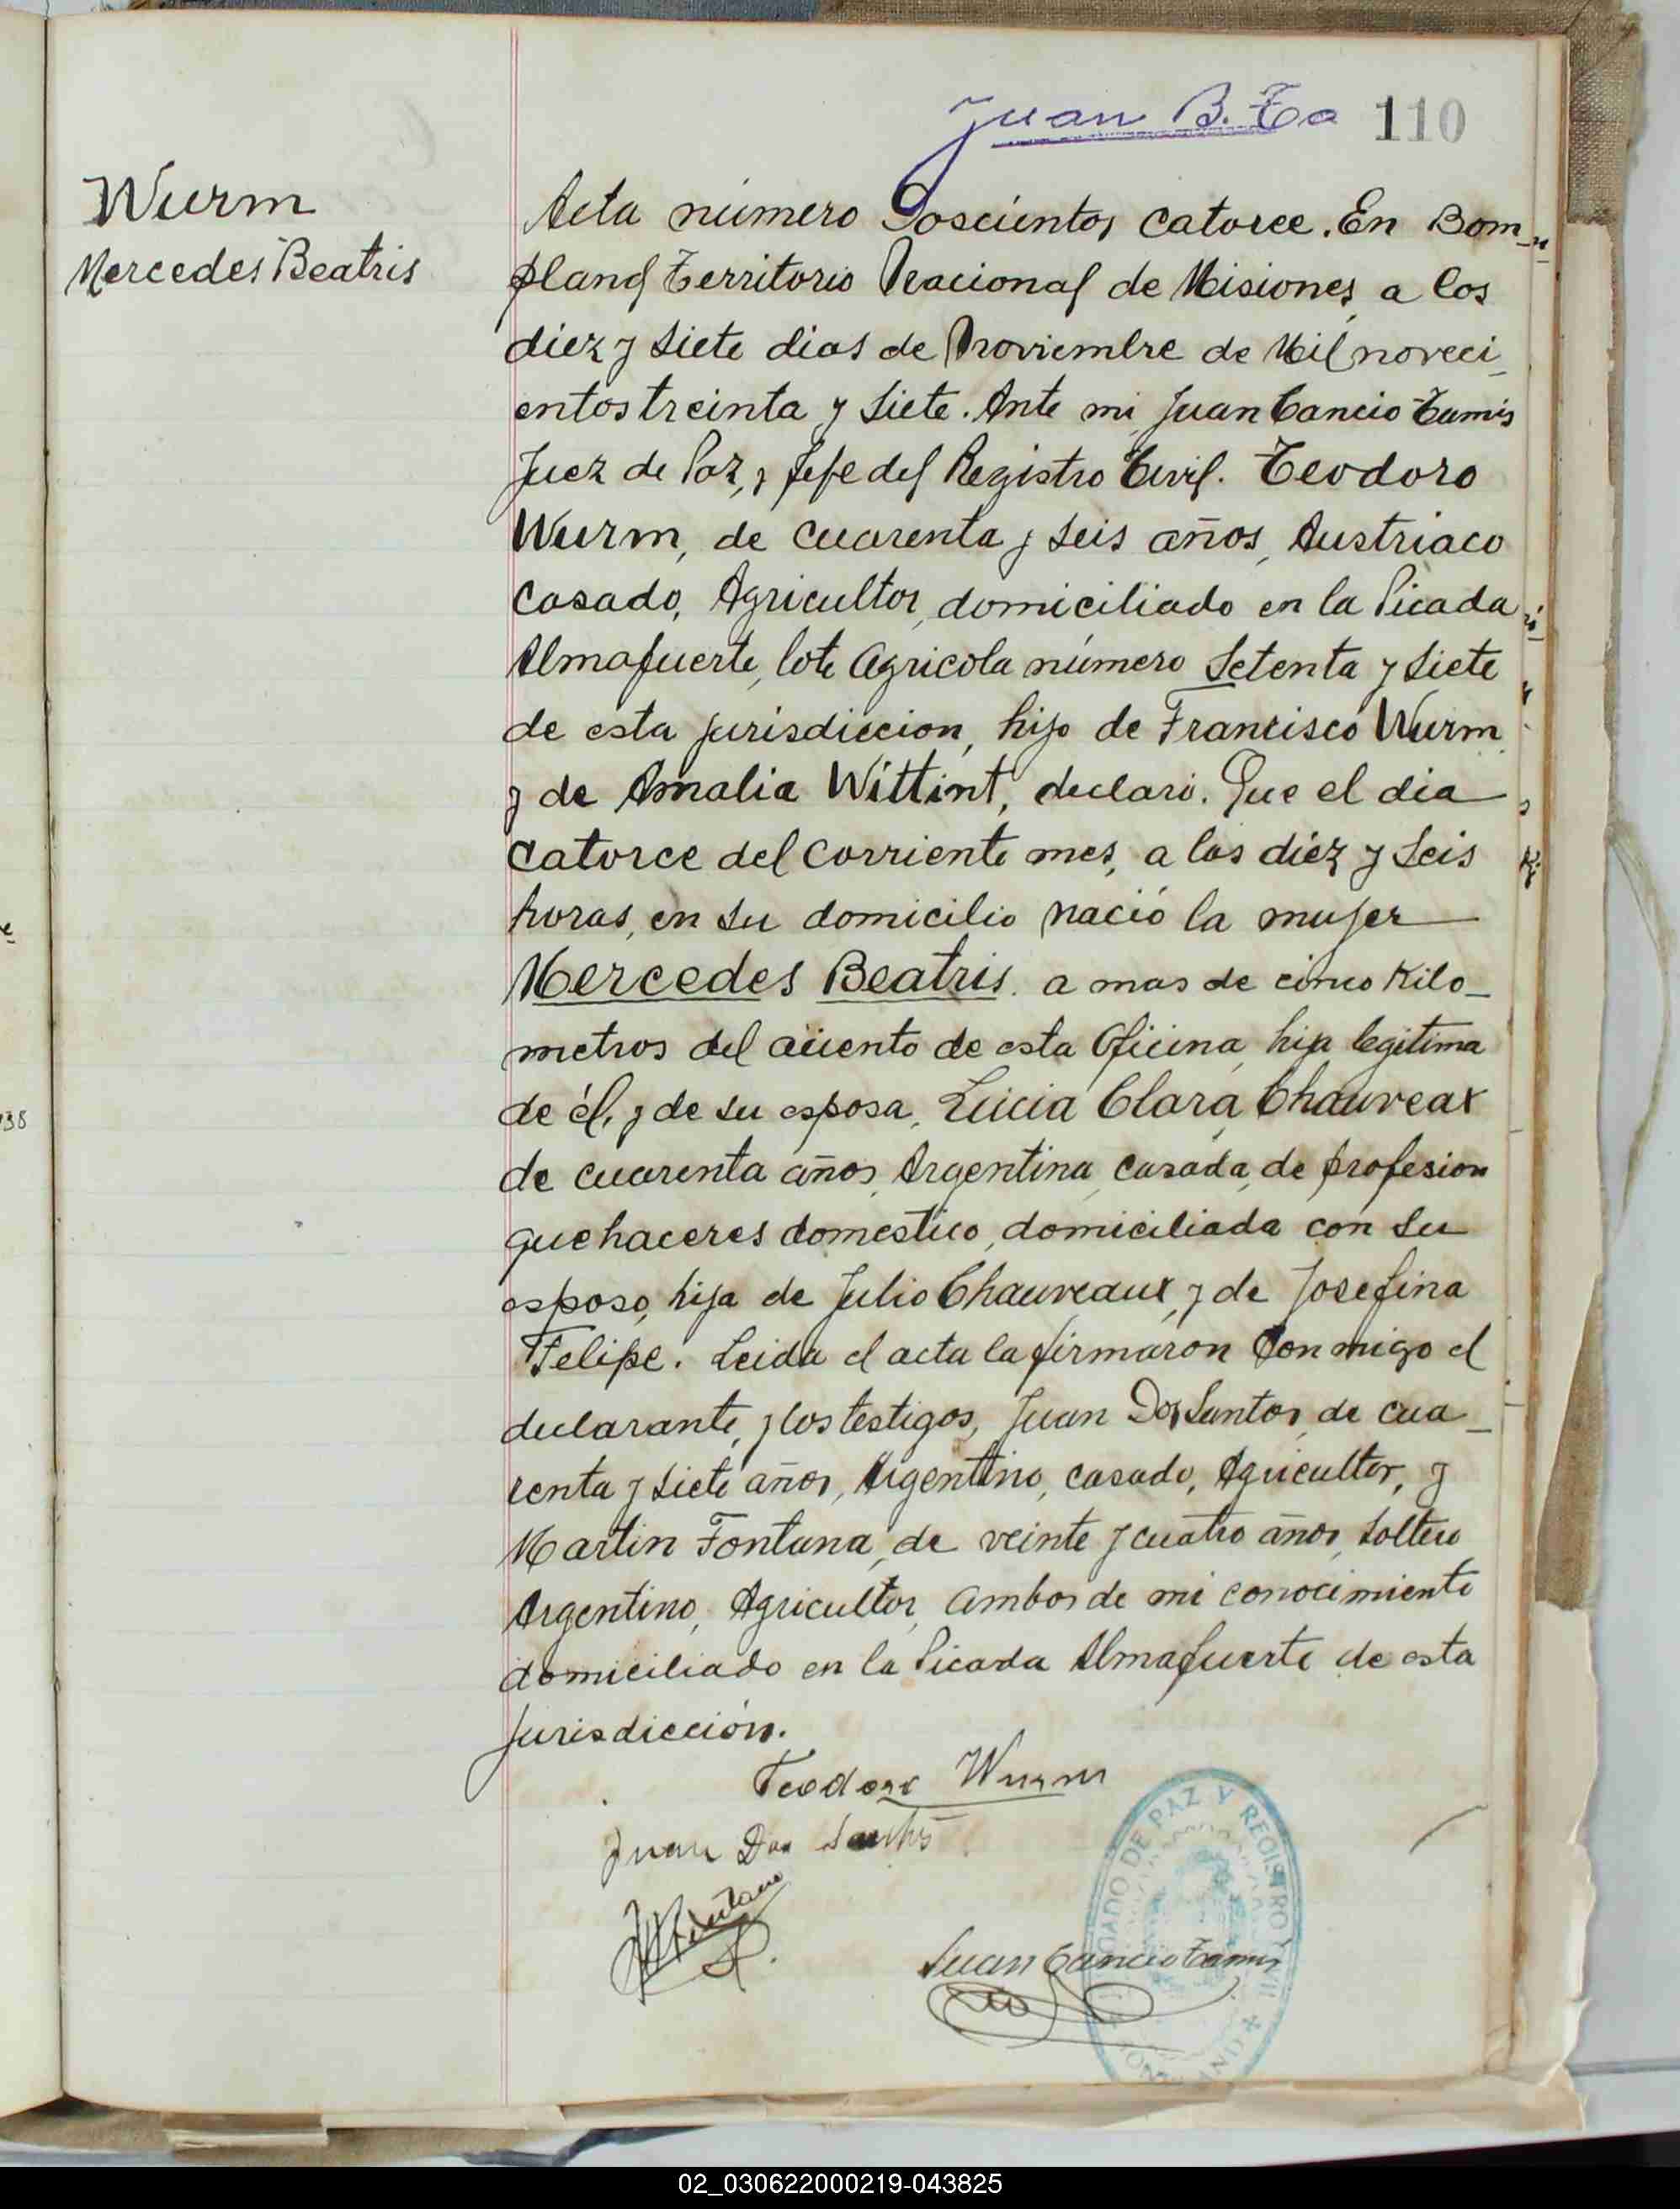 Juan B. Ta 110
Wurm
Mercedes Beatris
Acta número Doscientos catorce. En Bom-
pland Territorio Nacional de Misiones, a los
diez y siete dias de Noviembre de Mil noveci-
entos treinta y siete. Ante mi, Juan Cancio
Juez de Paz, y Jefe del Registro Civil. Teodoro
Wurm, de cuarenta y seis años, Austriaco
casado, Agricultor, domiciliado en la Picada
Almafuerte, lote agricola número setenta y siete
de esta jurisdiccion, hijo de Francisco Wurm
y de Amalia Wittint, declaró. Que el dia
catorce del corriente mes, a las diez y seis
horas, en su domicilio nació la mujer
Mercedes Beatris. a mas de cinco Kilo-
metros del de esta Oficina, hija legitima
de él, y de su esposa, Lucia Clara Chauveax
de cuarenta años, Argentina, casada, de profesion
quehaceres domestico, domiciliada con su
esposo, hija de Julio Chauveaux, y de Josefina
Felipe. Leida el acta la firmaron Conmigo el
declarante, y los testigos, Juan Dos Santos, de cua-
renta y siete años, Argentino, casado, Agricultor, y
Martin Fontana, de veinte y cuatro años, soltero
Argentino, Agricultor, ambos de mi conocimiento
domiciliado en la Picada Almafuerte de esta
jurisdicción.
Teodoro Wurm
Juan Dos Santos
Juan Cancio
JUZGADO DE PAZ Y REGISTRO CIVIL
BONPLAND
38
02_030622000219-043825